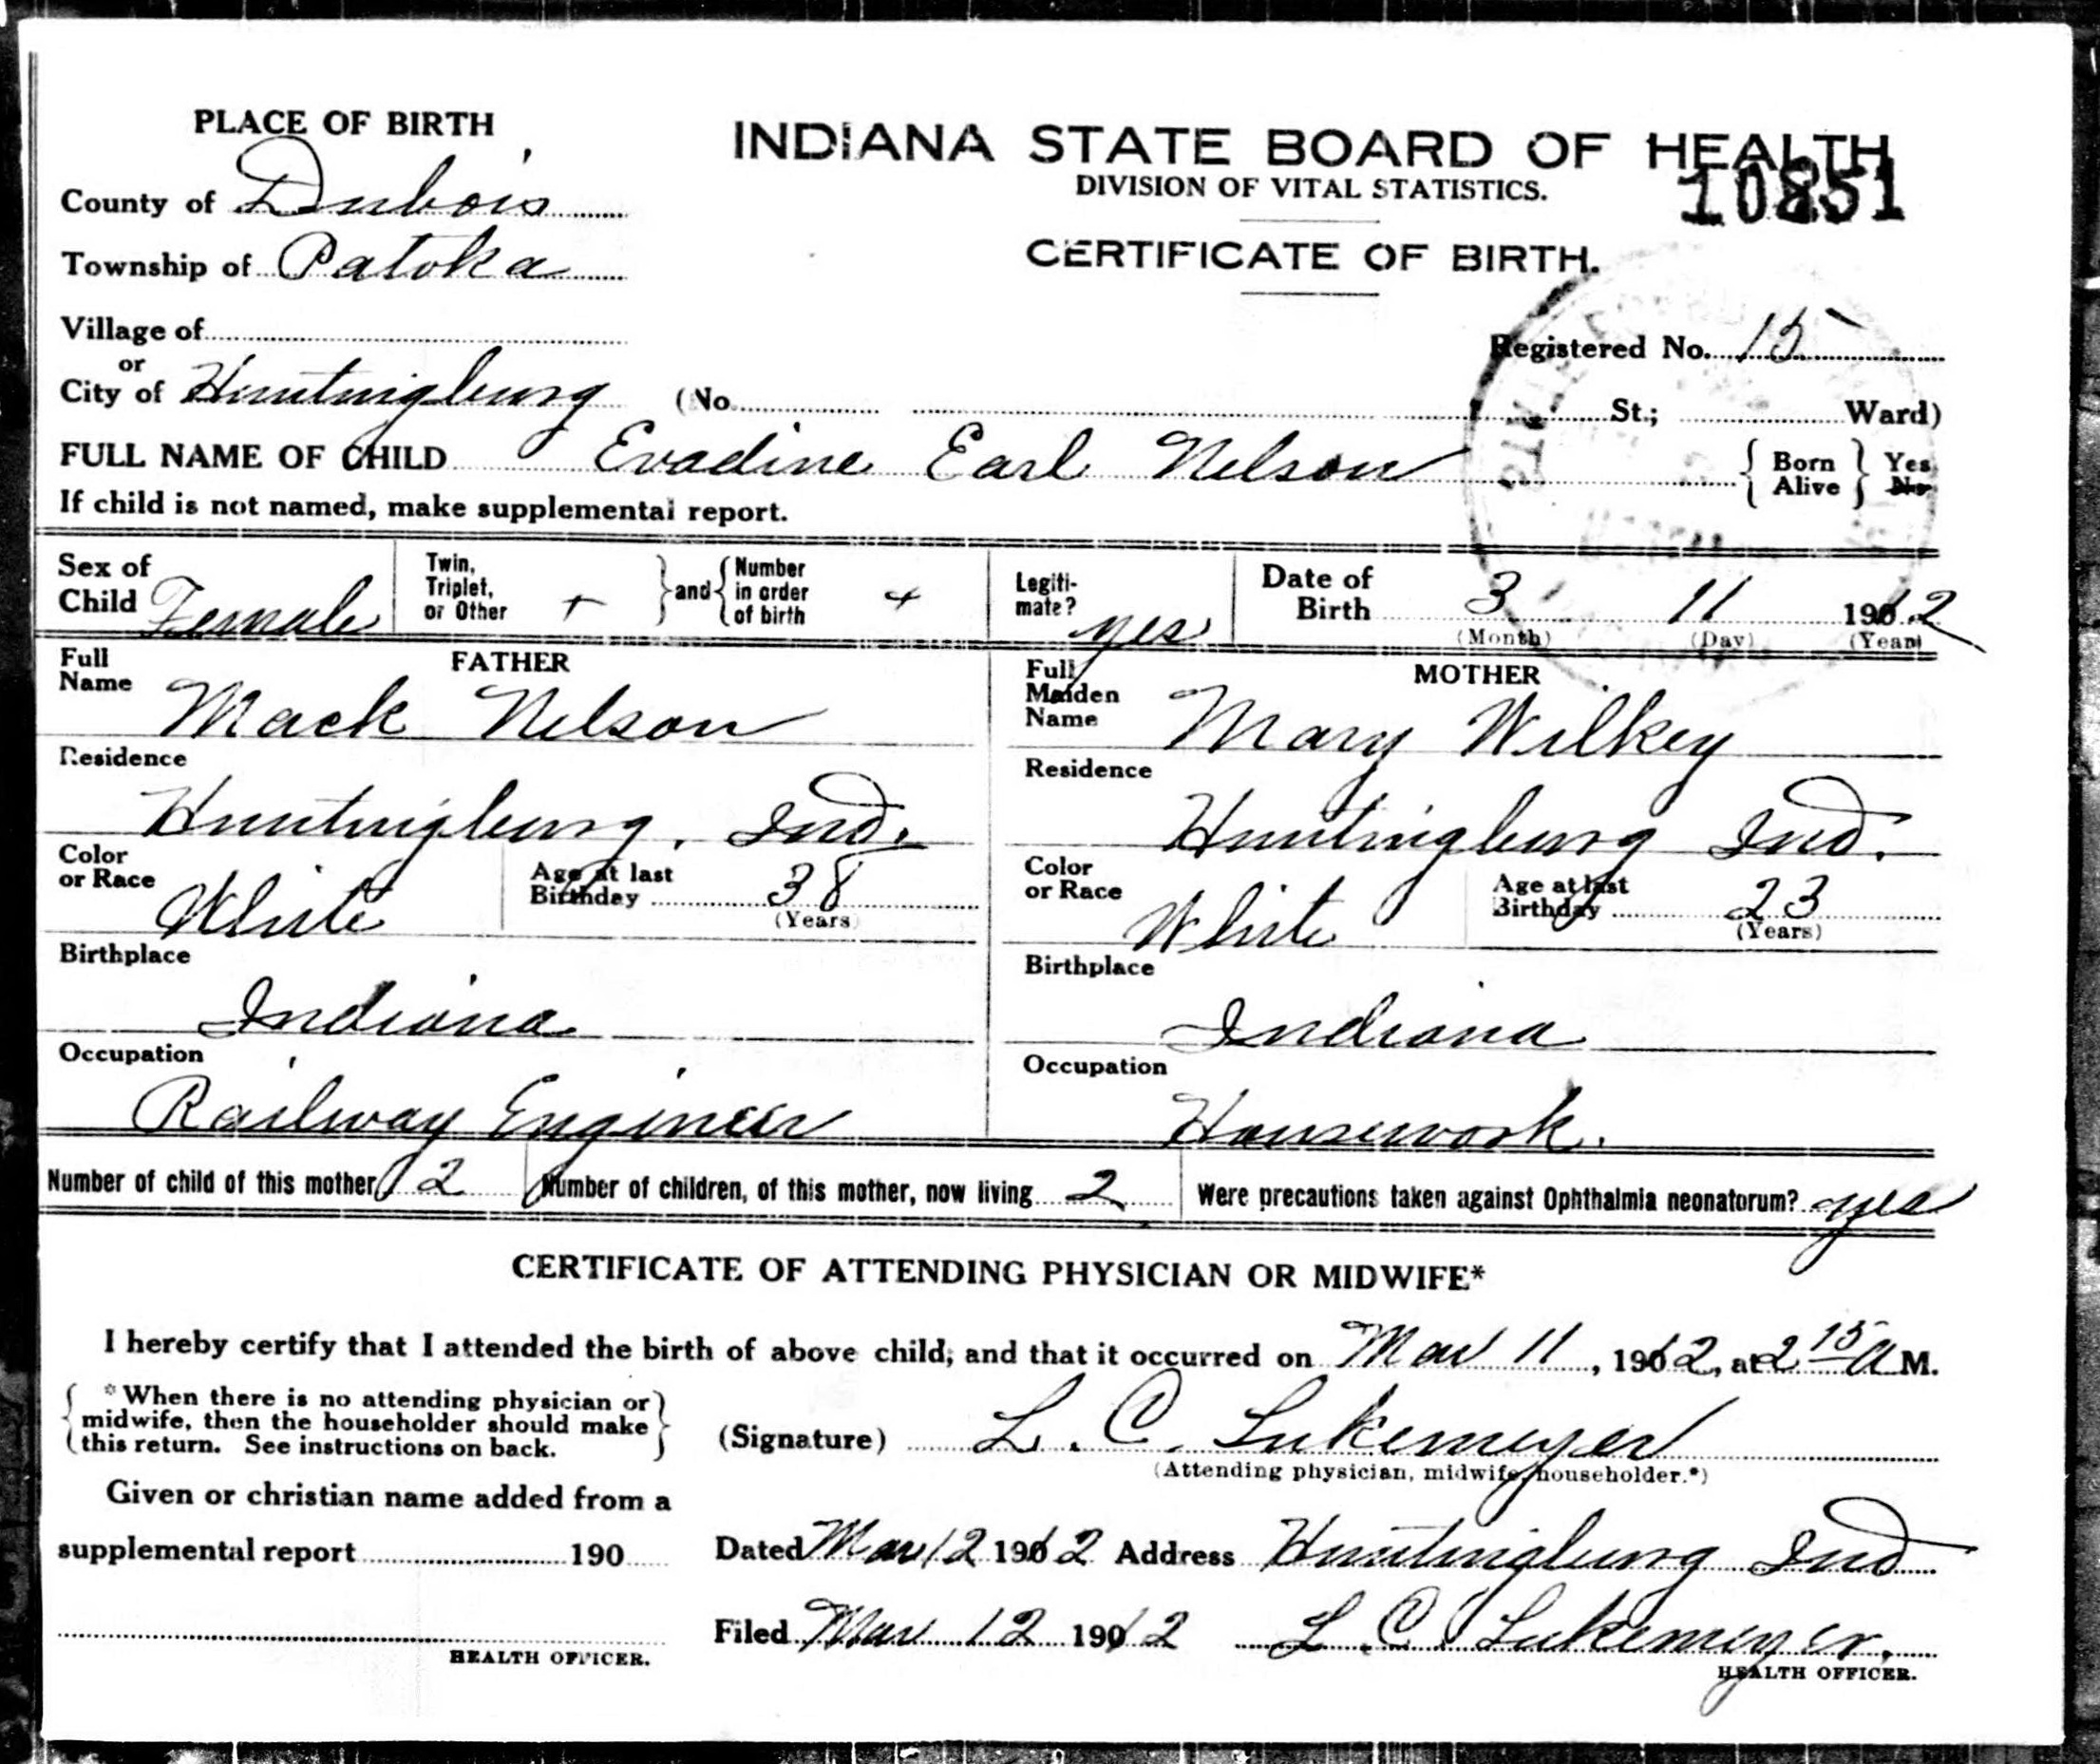 PLACE OF BIRTH
INDIANA STATE BOARD OF HEALTH
DIVISION OF VITAL STATISTICS.
10851
CERTIFICATE OF BIRTH.
County of Dubois
Township of Patoka
Village of
or
City of Huntingburg (No. St.; Ward)
Registered No. 15
FULL NAME OF CHILD Evadine Earl Nelson { Born Alive } Yes No
If child is not named, make supplemental report.
Sex of Child Female
Twin, Triplet, or Other + } and { Number in order of birth +
Legitimate? yes
Date of Birth 3 11 1912
(Month) (Day) (Year)
FATHER
Full Name Mack Nelson
Residence
Huntingburg, Ind.
Color or Race White
Age at last Birthday 38
(Years)
Birthplace
Indiana
Occupation
Railway Engineer
MOTHER
Full Maiden Name Mary Wilkey
Residence
Huntingburg Ind.
Color or Race White
Age at last Birthday 23
(Years)
Birthplace
Indiana
Occupation
Housework.
Number of child of this mother 2 Number of children, of this mother, now living 2 Were precautions taken against Ophthalmia neonatorum? yes
CERTIFICATE OF ATTENDING PHYSICIAN OR MIDWIFE*
I hereby certify that I attended the birth of above child; and that it occurred on Mar 11, 1912, at 2 15 A M.
{ *When there is no attending physician or
midwife, then the householder should make
this return. See instructions on back. }
(Signature) L. C. Lukemeyer
(Attending physician, midwife, householder.*)
Given or christian name added from a
supplemental report 190
HEALTH OFFICER.
Dated Mar 12 1912 Address Huntingburg Ind
Filed Mar 12 1912 L. C. Lukemeyer.
HEALTH OFFICER.